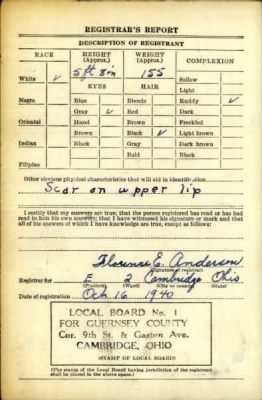 REGISTRAR'S REPORT
DESCRIPTION OF REGISTRANT
RACE HEIGHT (Approx.) WEIGHT (Approx.) COMPLEXION
White ✓ 5 ft 8 in 155 Sallow
EYES HAIR Light
Negro Blue Blonde Ruddy ✓
Gray ✓ Red Dark
Oriental Hazel Brown Freckled
Brown Black ✓ Light brown
Indian Black Gray Dark brown
Bald Black
Filipino
Other obvious physical characteristics that will aid in identification
Scar on upper lip
I certify that my answers are true; that the person registered has read or has had
read to him his own answers; that I have witnessed his signature or mark and that
all of his answers of which I have knowledge are true, except as follows:
Florence E. Anderson
(Signature of registrar)
Registrar for E 2 Cambridge Ohio
(Precinct) (Ward) (City or county) (State)
Date of registration Oct. 16 1940
LOCAL BOARD No. 1
FOR GUERNSEY COUNTY
Cor. 9th St. & Gaston Ave.
CAMBRIDGE, OHIO
(STAMP OF LOCAL BOARD)
(The stamp of the Local Board having jurisdiction of the registrant
shall be placed in the above space.)